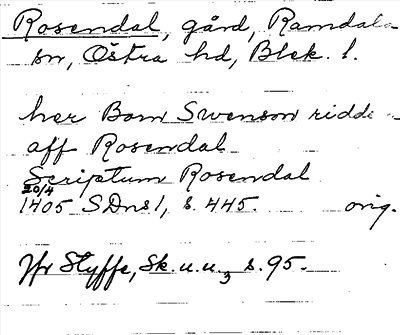 Rosendal, gård, Ramdala
sn, Östra hd, Blek. l.
her Bom Swenson ridde
aff Rosendal
Scriptum Rosendal
20/4
1405 SDns1, s. 445. orig.
Jfr Styffe, Sk.u.u3 s. 95.